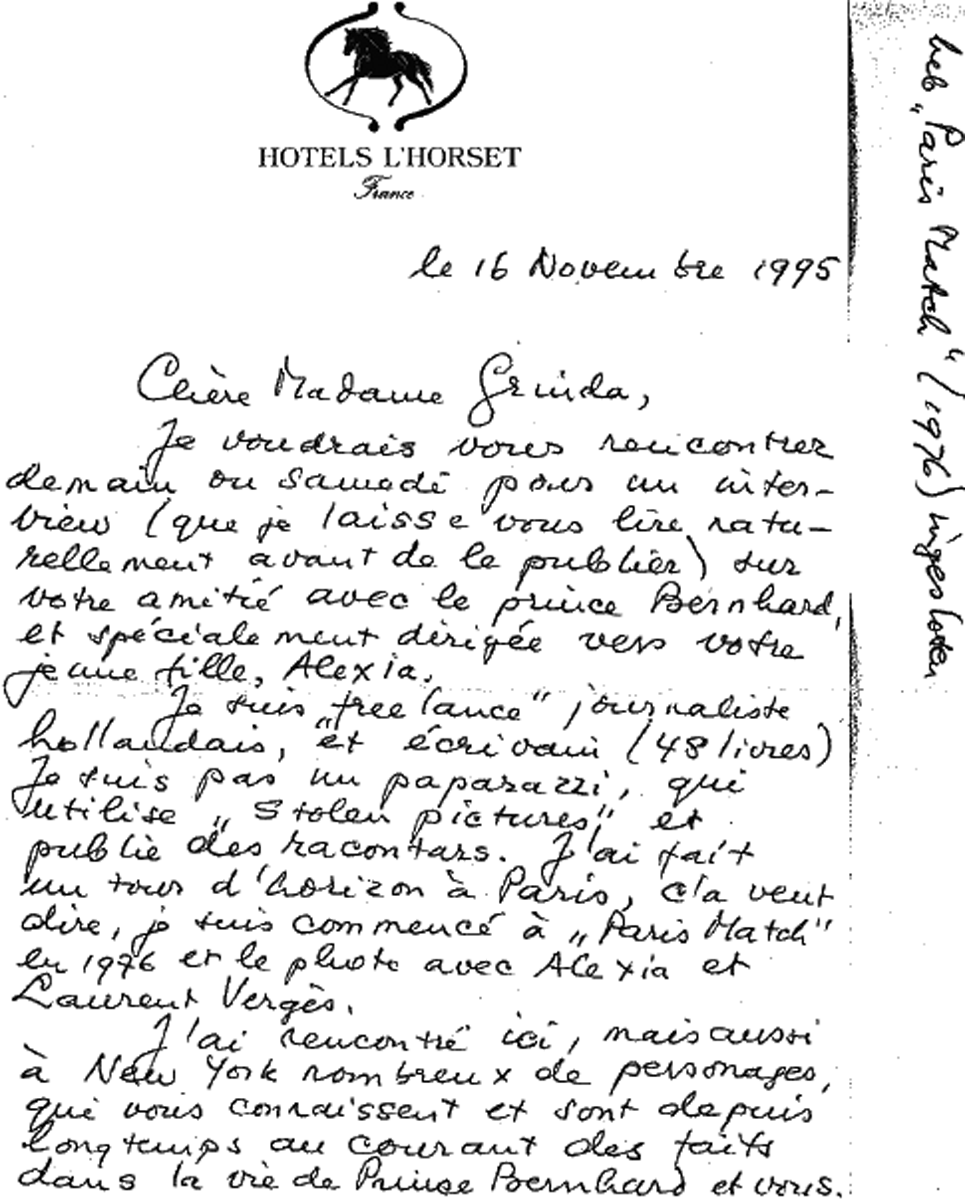 HOTELS L'HORSET
France
le 16 Novembre 1995
Chère Madame Grinda,
Je voudrais vous rencontrer
demain ou Samedi pour un inter-
view (que je laisse vous lire natu-
rellement avant de le publier) sur
votre amitié avec le prince Bernhard,
et spécialement dirigée vers votre
jeune fille, Alexia.
Je suis „free lance" journaliste
hollandais, et écrivain (48 livres)
Je suis pas un paparazzi, qui
utilise „Stolen pictures" et
publie des racontars. J'ai fait
un tour d'horizon à Paris, c'a veut
dire, je suis commencé à „Paris Match"
en 1976 et le photo avec Alexia et
Laurent Vergès.
J'ai rencontré ici, mais aussi
à New York nombreux de personages,
qui vous connaissent et sont depuis
longtemps au courant des faits
dans la vie de Prinse Bernhard et vous.
heb „Paris Match" (1976) ingesloten